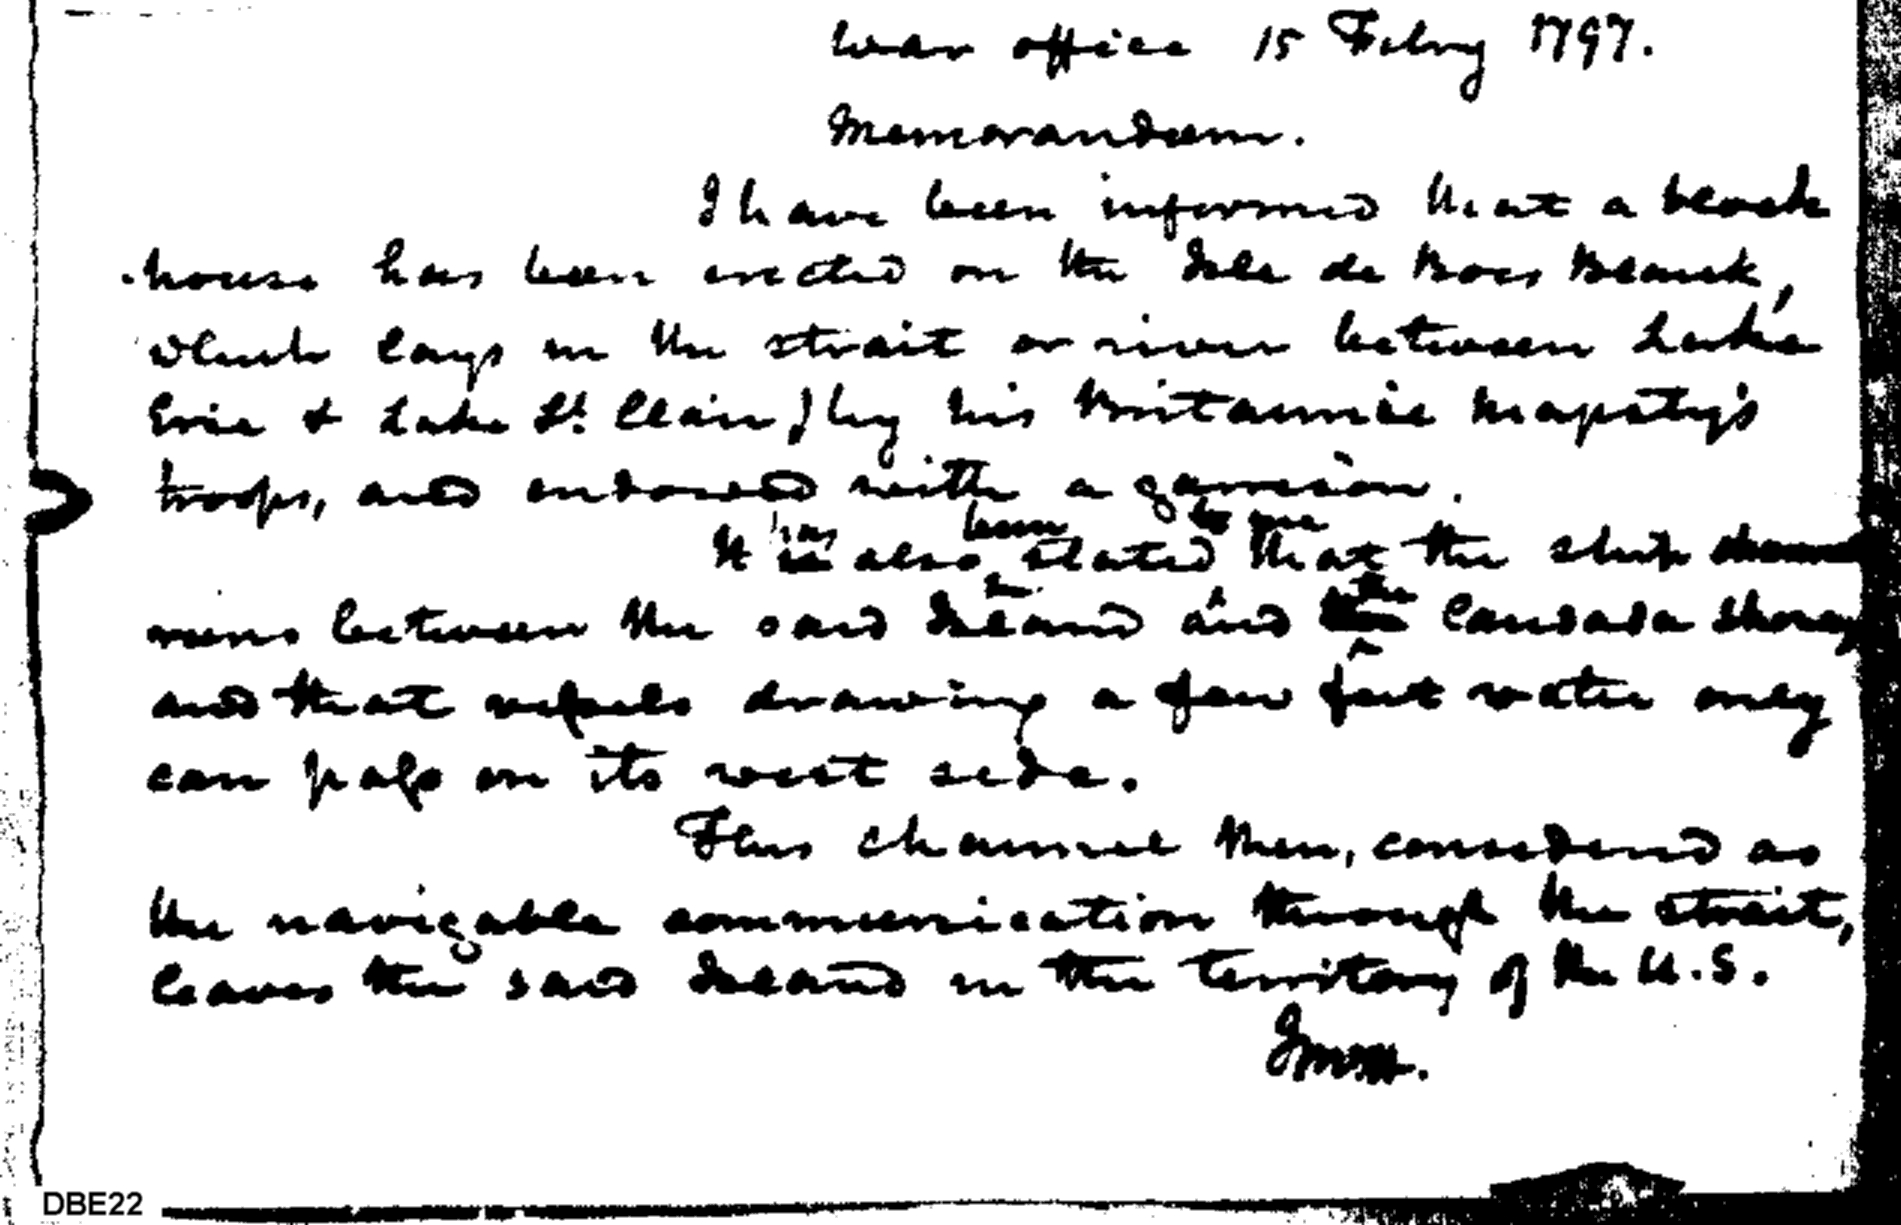 War office 15 Febry 1797.
Memorandum.
I have been informed that a block
house has been erected on the Isle de Bois Blanck,
which lays in the strait or river between Lake
Erie & Lake St. Clair, by his Britannic Majesty's
troops, and endowed with a garrison.
has been to me
It is also stated that the ship channel
the
runs between the said Island and the Candada shore,
and that vessels drawing a few feet water only
can pass on its west side.
This channel then, considered as
the navigable communication through the strait,
leaves the said Island in the territory of the U.S.
JMcH.
DBE22